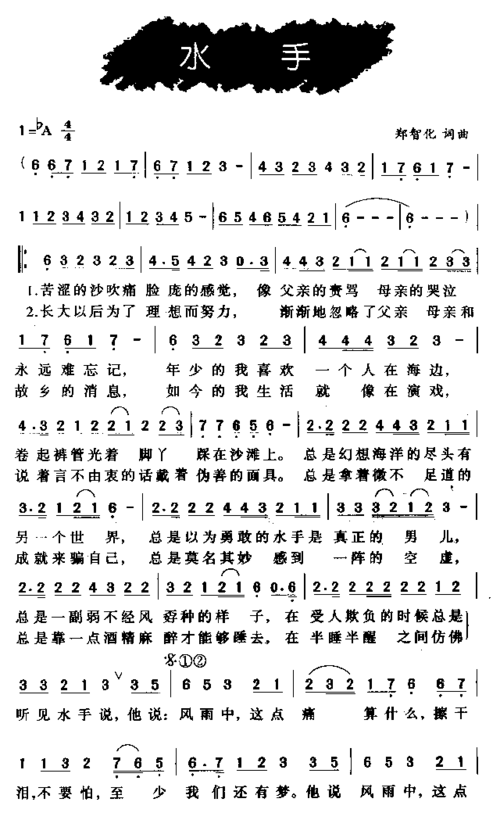 水 手
1=♭A 4/4
郑智化 词曲
(6 6 7 1 2 1 7 | 6 7 1 2 3 - | 4 3 2 3 4 3 2 | 1 7 6 1 7 - |
1 1 2 3 4 3 2 | 1 2 3 4 5 - | 6 5 4 6 5 4 2 1 | 6 - - - | 6 - - -)
6 3 2 3 2 3 | 4·5 4 2 3 0·3 | 4 4 3 2 1 1 | 2 1 1 2 3 3
1.苦涩的沙吹痛 脸 庞的感觉, 像 父亲的责骂 母亲的哭泣
2.长大以后为了 理 想而努力, 渐渐地忽略了父亲 母亲和
1 7 6 1 7 - | 6 6 3 2 3 | 4 5 4 2 3 -
永远难忘记, 年少的我喜欢 一个人在海边,
故乡的消息, 如今的我生活 就 像在演戏,
4·3 2 1 2 2 1 2 2 3 | 7 7 6 5 6 - | 2·2 2 2 4 4 3 2 1 1
卷起裤管光着 脚丫 踩在沙滩上。总是幻想海洋的尽头有
说着言不由衷的话戴着 伪善的面具。总是拿着微不 足道的
3·2 1 2 1 6 - | 2·2 2 2 4 4 3 2 1 1 | 3 3 2 1 2 3 -
另一个世 界, 总是以为勇敢的水手是 真正的 男 儿,
成就来骗自己, 总是莫名其妙 感到 一阵的 空 虚,
2·2 2 2 4 3 2 2 | 1 2 2 1 6 0·6 | 2·2 2 2 2 2 1 2
总是一副弱不经风 孬种的样 子, 在 受人欺负的时候总是
总是靠一点酒精麻 醉才能够睡去, 在 半睡半醒 之间仿佛
𝄋①②
3 3 2 1 3 3 5 | 6 5 3 2 1 | 2 3 2 1 7 6 6 7
听见水手说,他说:风雨中,这点 痛 算什么,擦干
1 1 3 2 7 6 5 | 6·7 1 2 3 3 5 | 6 5 3 2 1
泪,不要怕,至 少 我们还有梦。他说 风雨中,这点